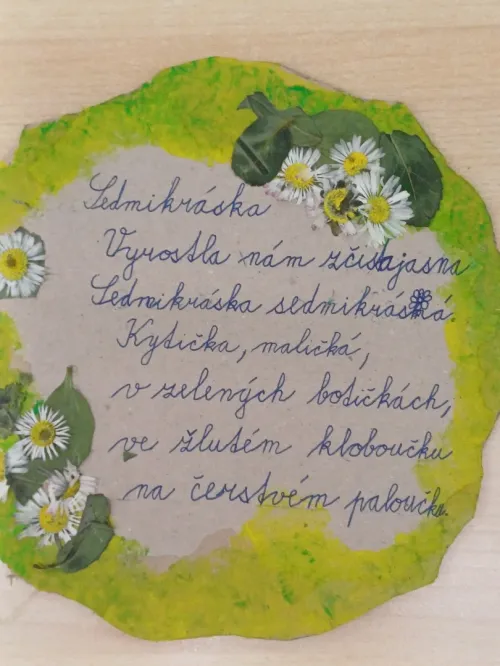 Sedmikráska
Vyrostla nám zčistajasna
Sedmikráska sedmikrásná.
Kytička, maličká,
v zelených botičkách,
ve žlutém kloboučku
na čerstvém paloučku.